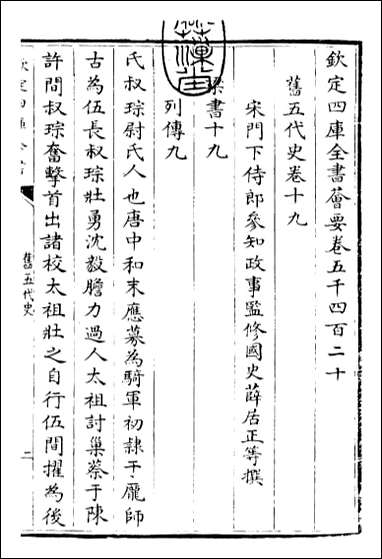 欽定四庫全書薈要卷五千四百二十
舊五代史卷十九
宋門下侍郎參知政事監修國史薛居正等撰
梁書十九
列傳九
氏叔琮尉氏人也唐中和末應募為騎軍初隸于龐師
古為伍長叔琮壯勇沈毅膽力過人太祖討巢蔡于陳
許間叔琮奮擊首出諸校太祖壯之自行伍間擢為後
舊五代史